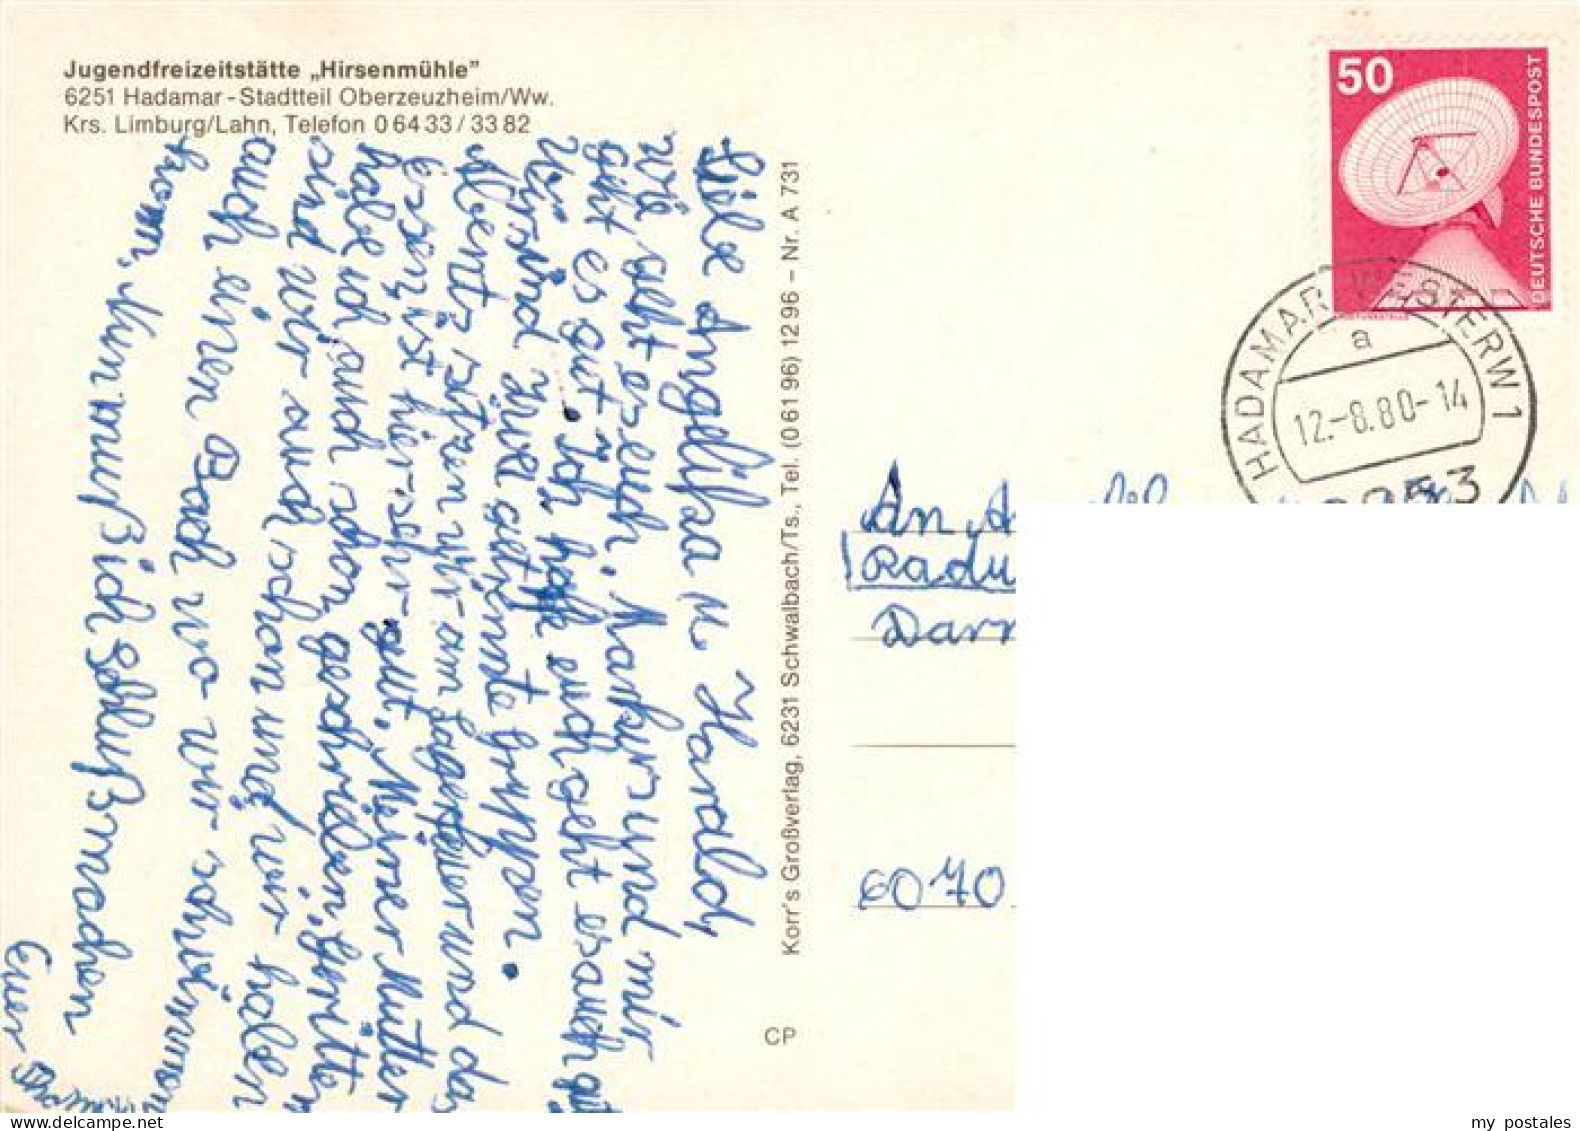 Jugendfreizeitstätte „Hirsenmühle"
6251 Hadamar - Stadtteil Oberzeuzheim/Ww.
Krs. Limburg/Lahn, Telefon 0 64 33 / 33 82
Liebe Angelika u Harald,
wie geht es euch. Markus und mir
geht es gut. Ich hoffe euch geht es auch gut
Wir sind zwei getrennte Gruppen.
Abents sitzen wir am Lagerfeuer und das
Essen ist hier sehr gut. Meiner Mutter
habe ich auch schon geschrieben. geritten
sind wir auch schon und wir haben
auch einen Bach wo wir schwimmen
kom. Nun muß ich Schluß machen
Euer
Korr's Großverlag, 6231 Schwalbach/Ts., Tel. (0 61 96) 12 96 – Nr. A 731
CP
50
DEUTSCHE BUNDESPOST
HADAMAR WESTERW 1
a
12.-8.80-14
6253
An
6070
my postales